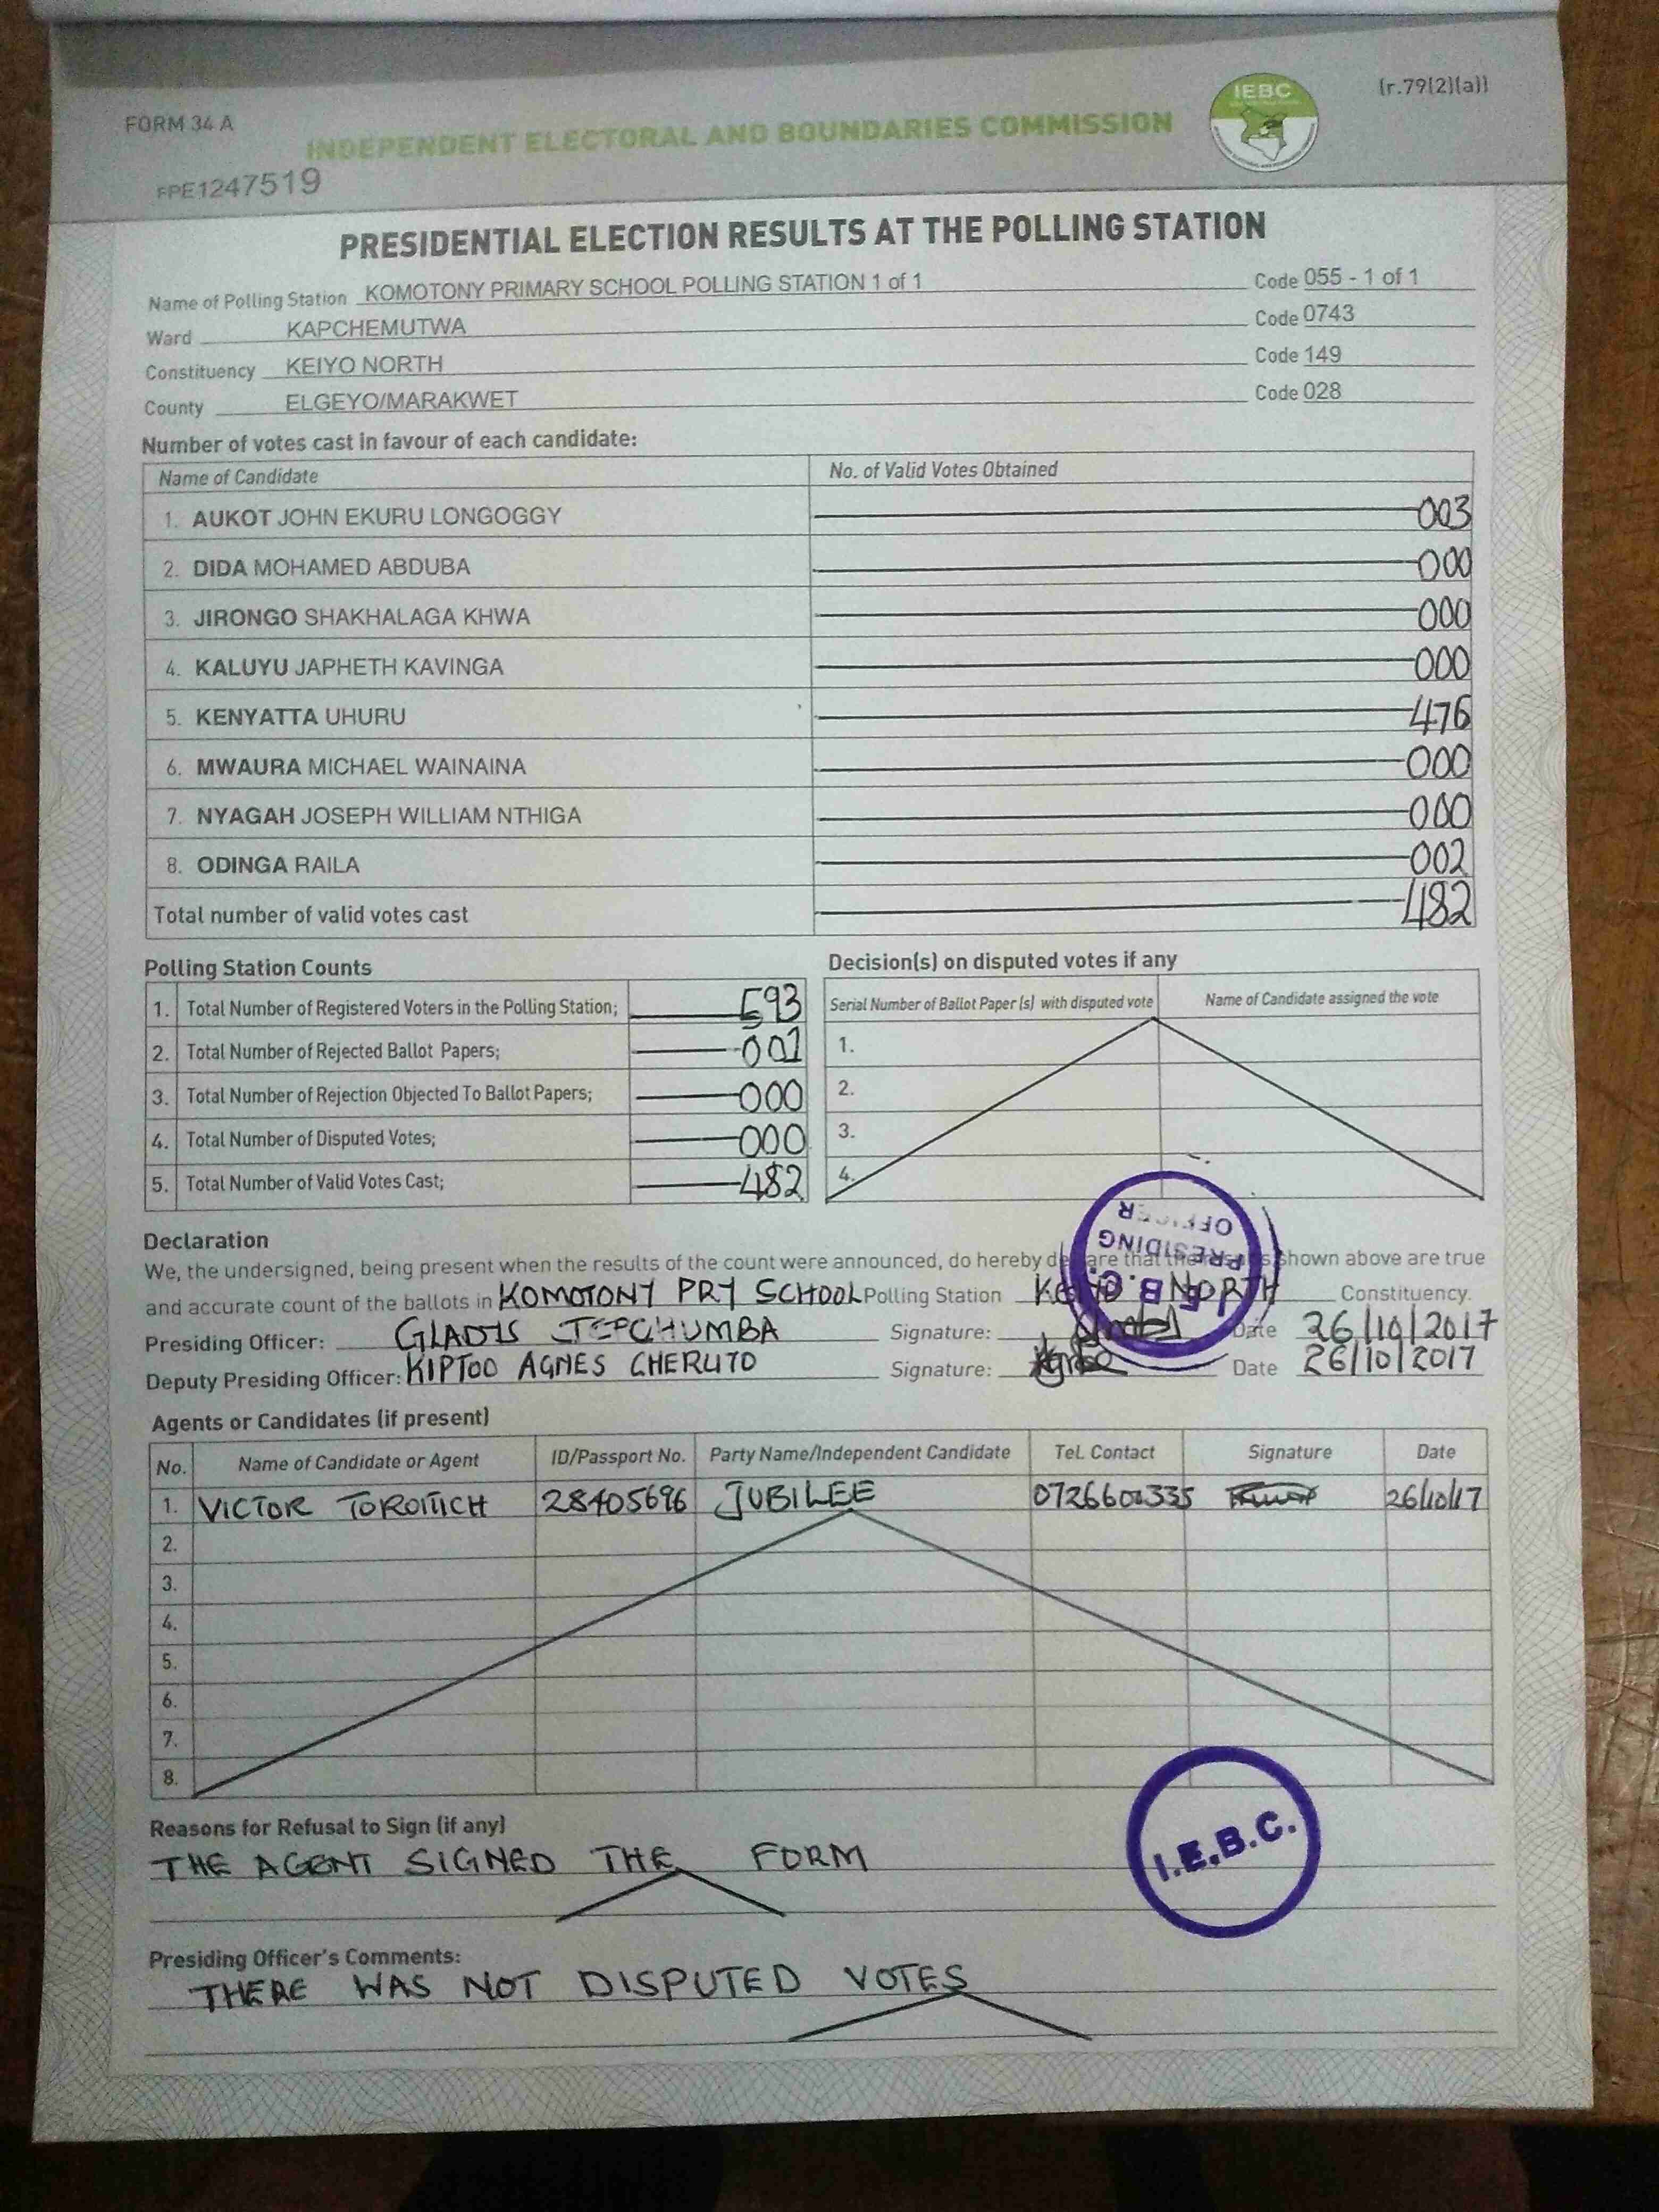 FORM 34 A
(r.79(2)(a))
IEBC
INDEPENDENT ELECTORAL AND BOUNDARIES COMMISSION
FPE1247519
PRESIDENTIAL ELECTION RESULTS AT THE POLLING STATION
Name of Polling Station KOMOTONY PRIMARY SCHOOL POLLING STATION 1 of 1 Code 055 - 1 of 1
Ward KAPCHEMUTWA Code 0743
Constituency KEIYO NORTH Code 149
County ELGEYO/MARAKWET Code 028
Number of votes cast in favour of each candidate:
Name of Candidate No. of Valid Votes Obtained
1. AUKOT JOHN EKURU LONGOGGY 003
2. DIDA MOHAMED ABDUBA 000
3. JIRONGO SHAKHALAGA KHWA 000
4. KALUYU JAPHETH KAVINGA 000
5. KENYATTA UHURU 476
6. MWAURA MICHAEL WAINAINA 000
7. NYAGAH JOSEPH WILLIAM NTHIGA 000
8. ODINGA RAILA 002
Total number of valid votes cast 482
Polling Station Counts
1. Total Number of Registered Voters in the Polling Station; 593
2. Total Number of Rejected Ballot Papers; 001
3. Total Number of Rejection Objected To Ballot Papers; 000
4. Total Number of Disputed Votes; 000
5. Total Number of Valid Votes Cast; 482
Decision(s) on disputed votes if any
Serial Number of Ballot Paper (s) with disputed vote Name of Candidate assigned the vote
1.
2.
3.
4.
PRESIDING OFFICER
I.E.B.C.
Declaration
We, the undersigned, being present when the results of the count were announced, do hereby declare that the results shown above are true
and accurate count of the ballots in KOMOTONY PRY SCHOOL Polling Station KEIYO NORTH Constituency.
Presiding Officer: GLADYS JEPCHUMBA Signature: Date 26/10/2017
Deputy Presiding Officer: KIPTOO AGNES CHERUTO Signature: Date 26/10/2017
Agents or Candidates (if present)
No. Name of Candidate or Agent ID/Passport No. Party Name/Independent Candidate Tel. Contact Signature Date
1. VICTOR TOROITICH 28405696 JUBILEE 0726600335 26/10/17
2.
3.
4.
5.
6.
7.
8.
Reasons for Refusal to Sign (if any)
THE AGENT SIGNED THE FORM
I.E.B.C.
Presiding Officer's Comments:
THERE WAS NOT DISPUTED VOTES